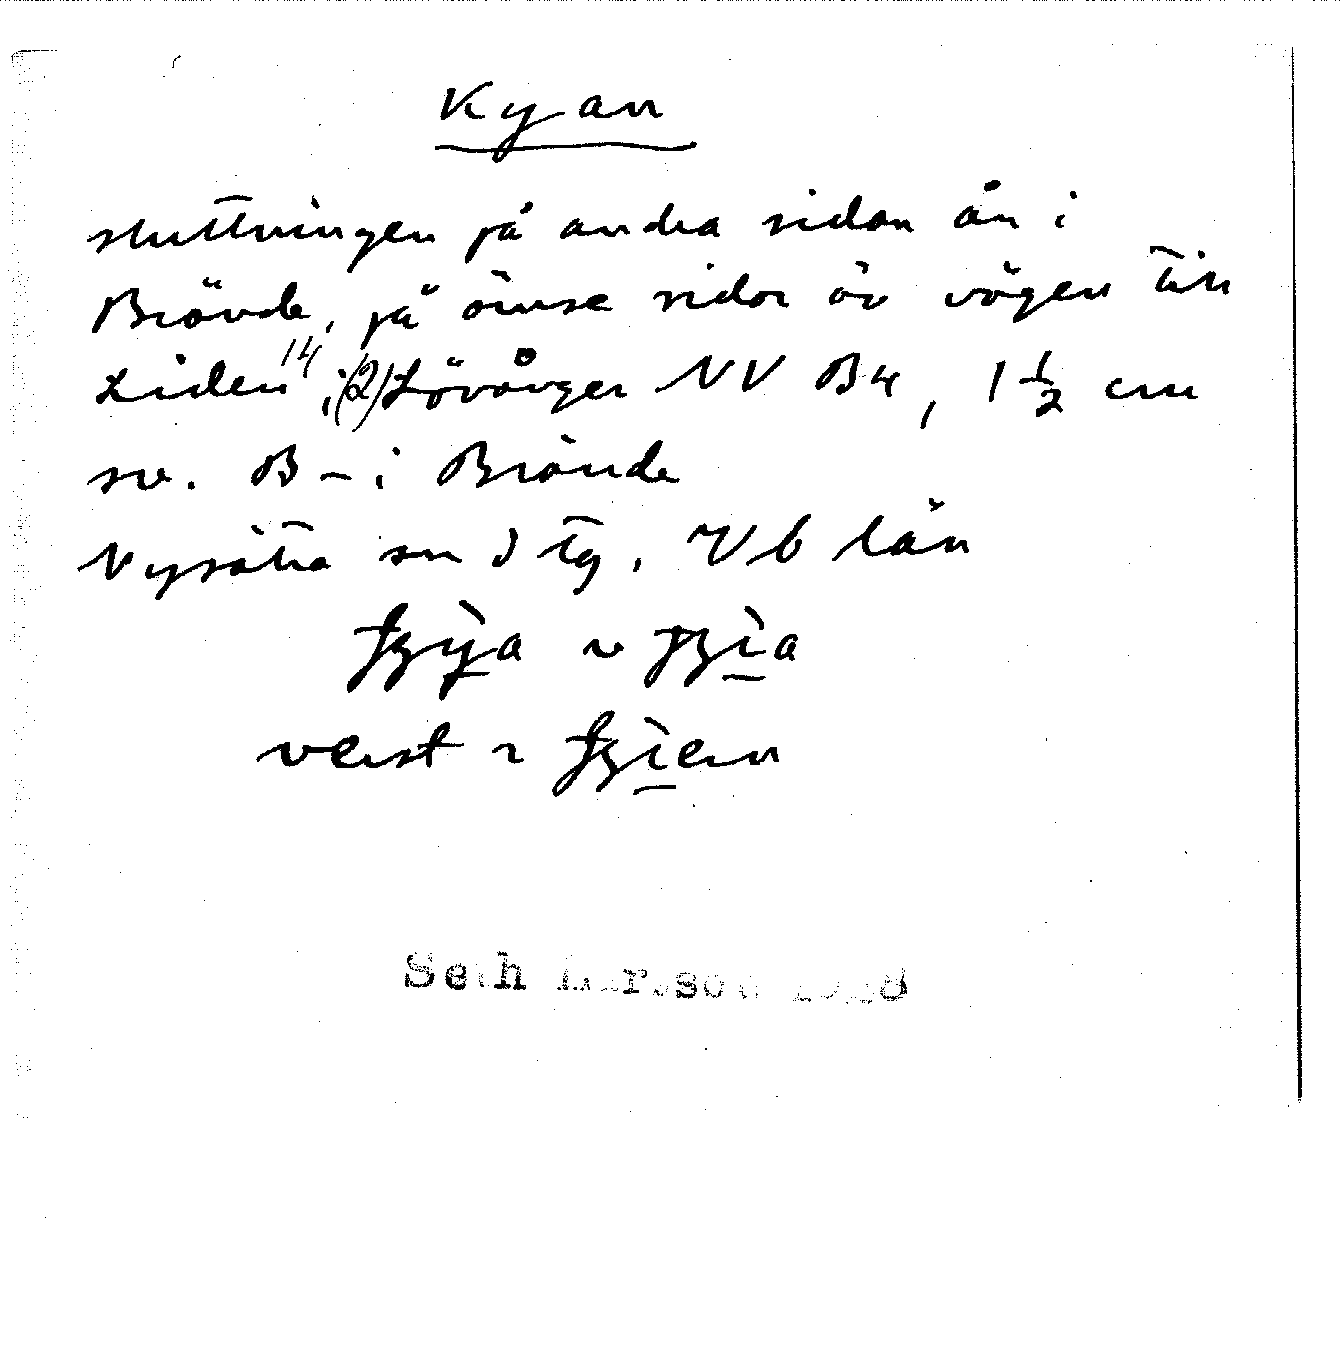 Kyan
sluttningen på andra sidan ån i
Brände, på ömse sidor av vägen till
Liden 14, (2) Lövånger NV B4, 1 1/2 cm
sv. B-i Brände
Nysätra sn o tg. Vb län
verst
Seth Larsson